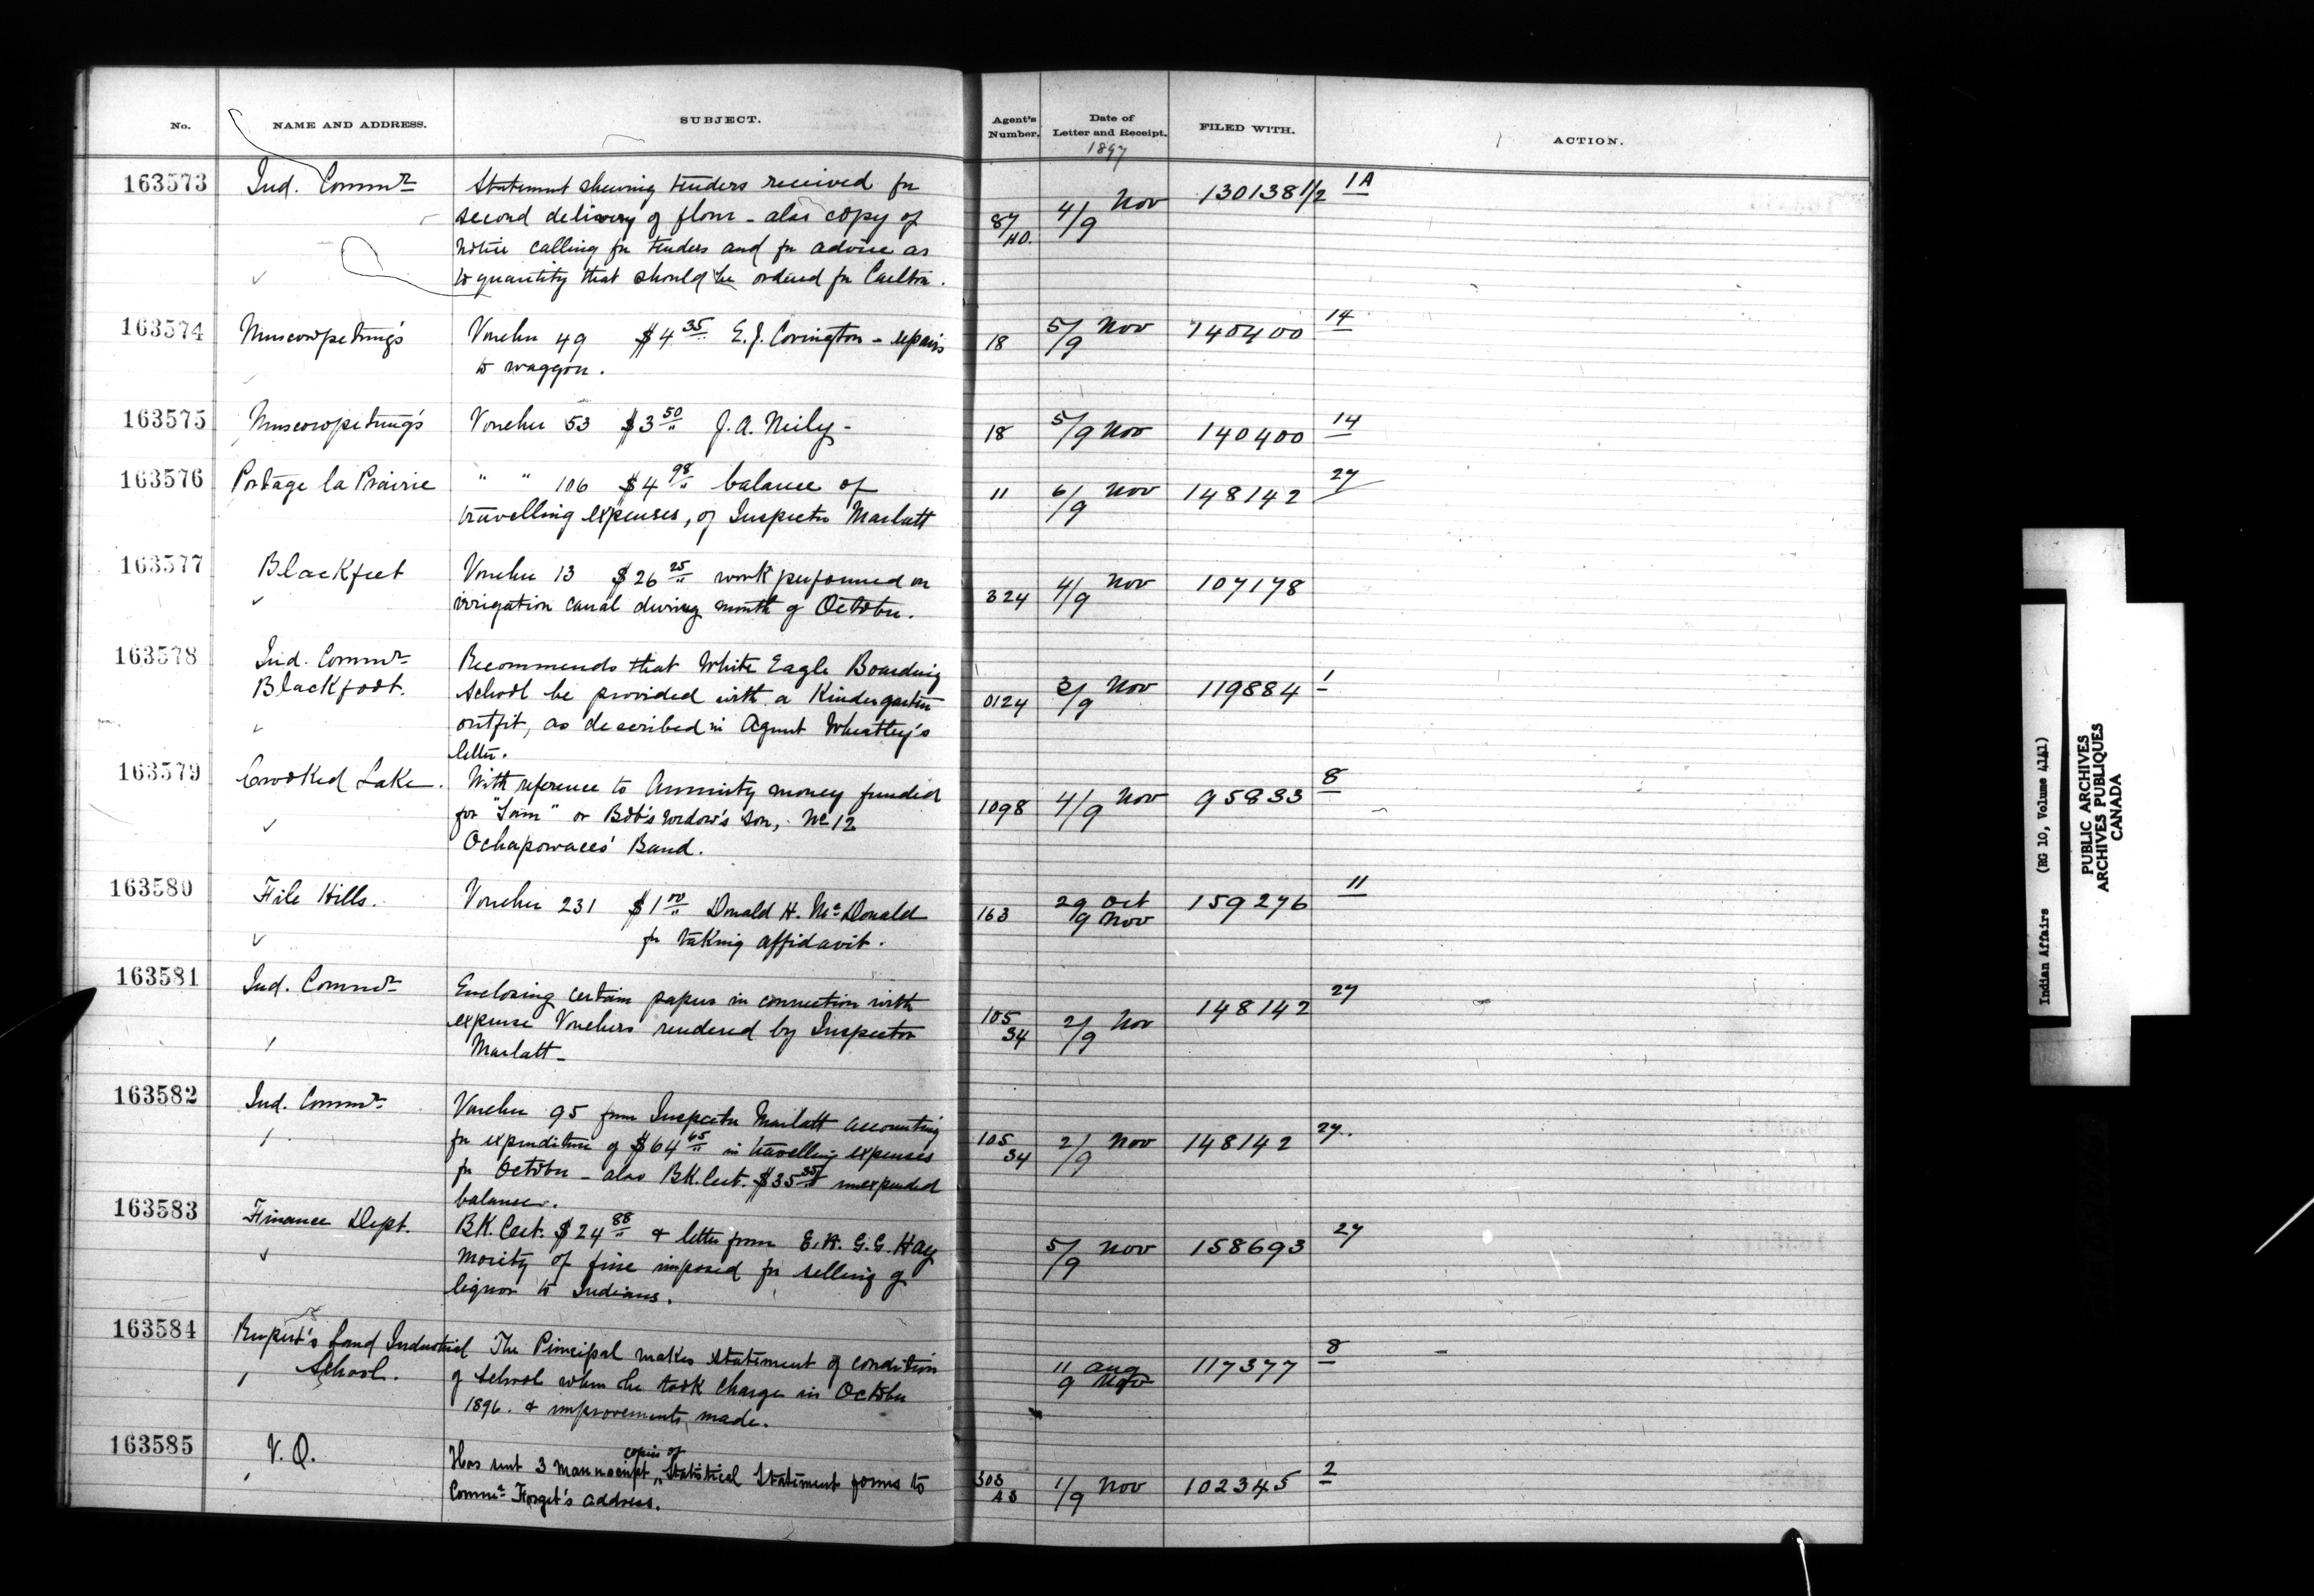 No. NAME AND ADDRESS. SUBJECT. Agent's Number. Date of Letter and Receipt. FILED WITH. ACTION.
1897
163573 Ind. Commr Statement shewing tenders received for 87/HO. 4/9 Nov 130138 1/2 1A
second delivery of flour - also copy of
notice calling for tenders and for advice as
to quantity that should be ordered for Carlton.
163574 Muscowpetung's Voucher 49 $4 35 E. J. Covington - repairs 18 5/9 Nov 140400 14
to waggon.
163575 Muscowpetung's Voucher 53 $3 50 J. A. Neily - 18 5/9 Nov 140400 14
163576 Portage la Prairie " " 106 $4 98 balance of 11 6/9 Nov 148142 27
travelling expenses, of Inspector Marlatt
163577 Blackfeet Voucher 13 $26 25 work performed on 324 4/9 Nov 107178
irrigation canal during month of October.
163578 Ind. Commr Recommends that White Eagle Boarding
Blackfoot. School be provided with a Kindergarten 0124 3/9 Nov 119884 1
outfit, as described in Agent Wheatley's
letter.
163579 Crooked Lake. With reference to Annuity money funded 1098 4/9 Nov 95833 8
for "Sam" or Bob's widow's son, No 12
Ochapowaces' Band.
163580 File Hills. Voucher 231 $1 00 Donald H. McDonald 163 29 Oct 159276 11
for taking affidavit. 9 Nov
163581 Ind. Commr Enclosing certain papers in connection with 105 34 2/9 Nov 148142 27
expense Vouchers rendered by Inspector
Marlatt -
163582 Ind. Commr Voucher 95 from Inspector Marlatt accounting 105 34 2/9 Nov 148142 27.
for expenditure of $64 65 in travelling expenses
for October - also BK. Cert. $35 35 unexpended
balance.
163583 Finance Dept. BK. Cert. $24 88 & letter from E. A. G. G. Hay 5/9 Nov 158693 27
Moiety of fine imposed for selling of
liquor to Indians.
163584 Rupert's Land Industrial The Principal makes statement of condition 11 Aug 117377 8
School. of School when he took charge in October 9 Nov
1896. & improvements made.
163585 V. Q. Has sent 3 manuscript copies of Statistical Statement forms to 303 A3 1/9 Nov 102345 2
Commr Forget's address.
Indian Affairs (RG 10, Volume 4141)
PUBLIC ARCHIVES
ARCHIVES PUBLIQUES
CANADA